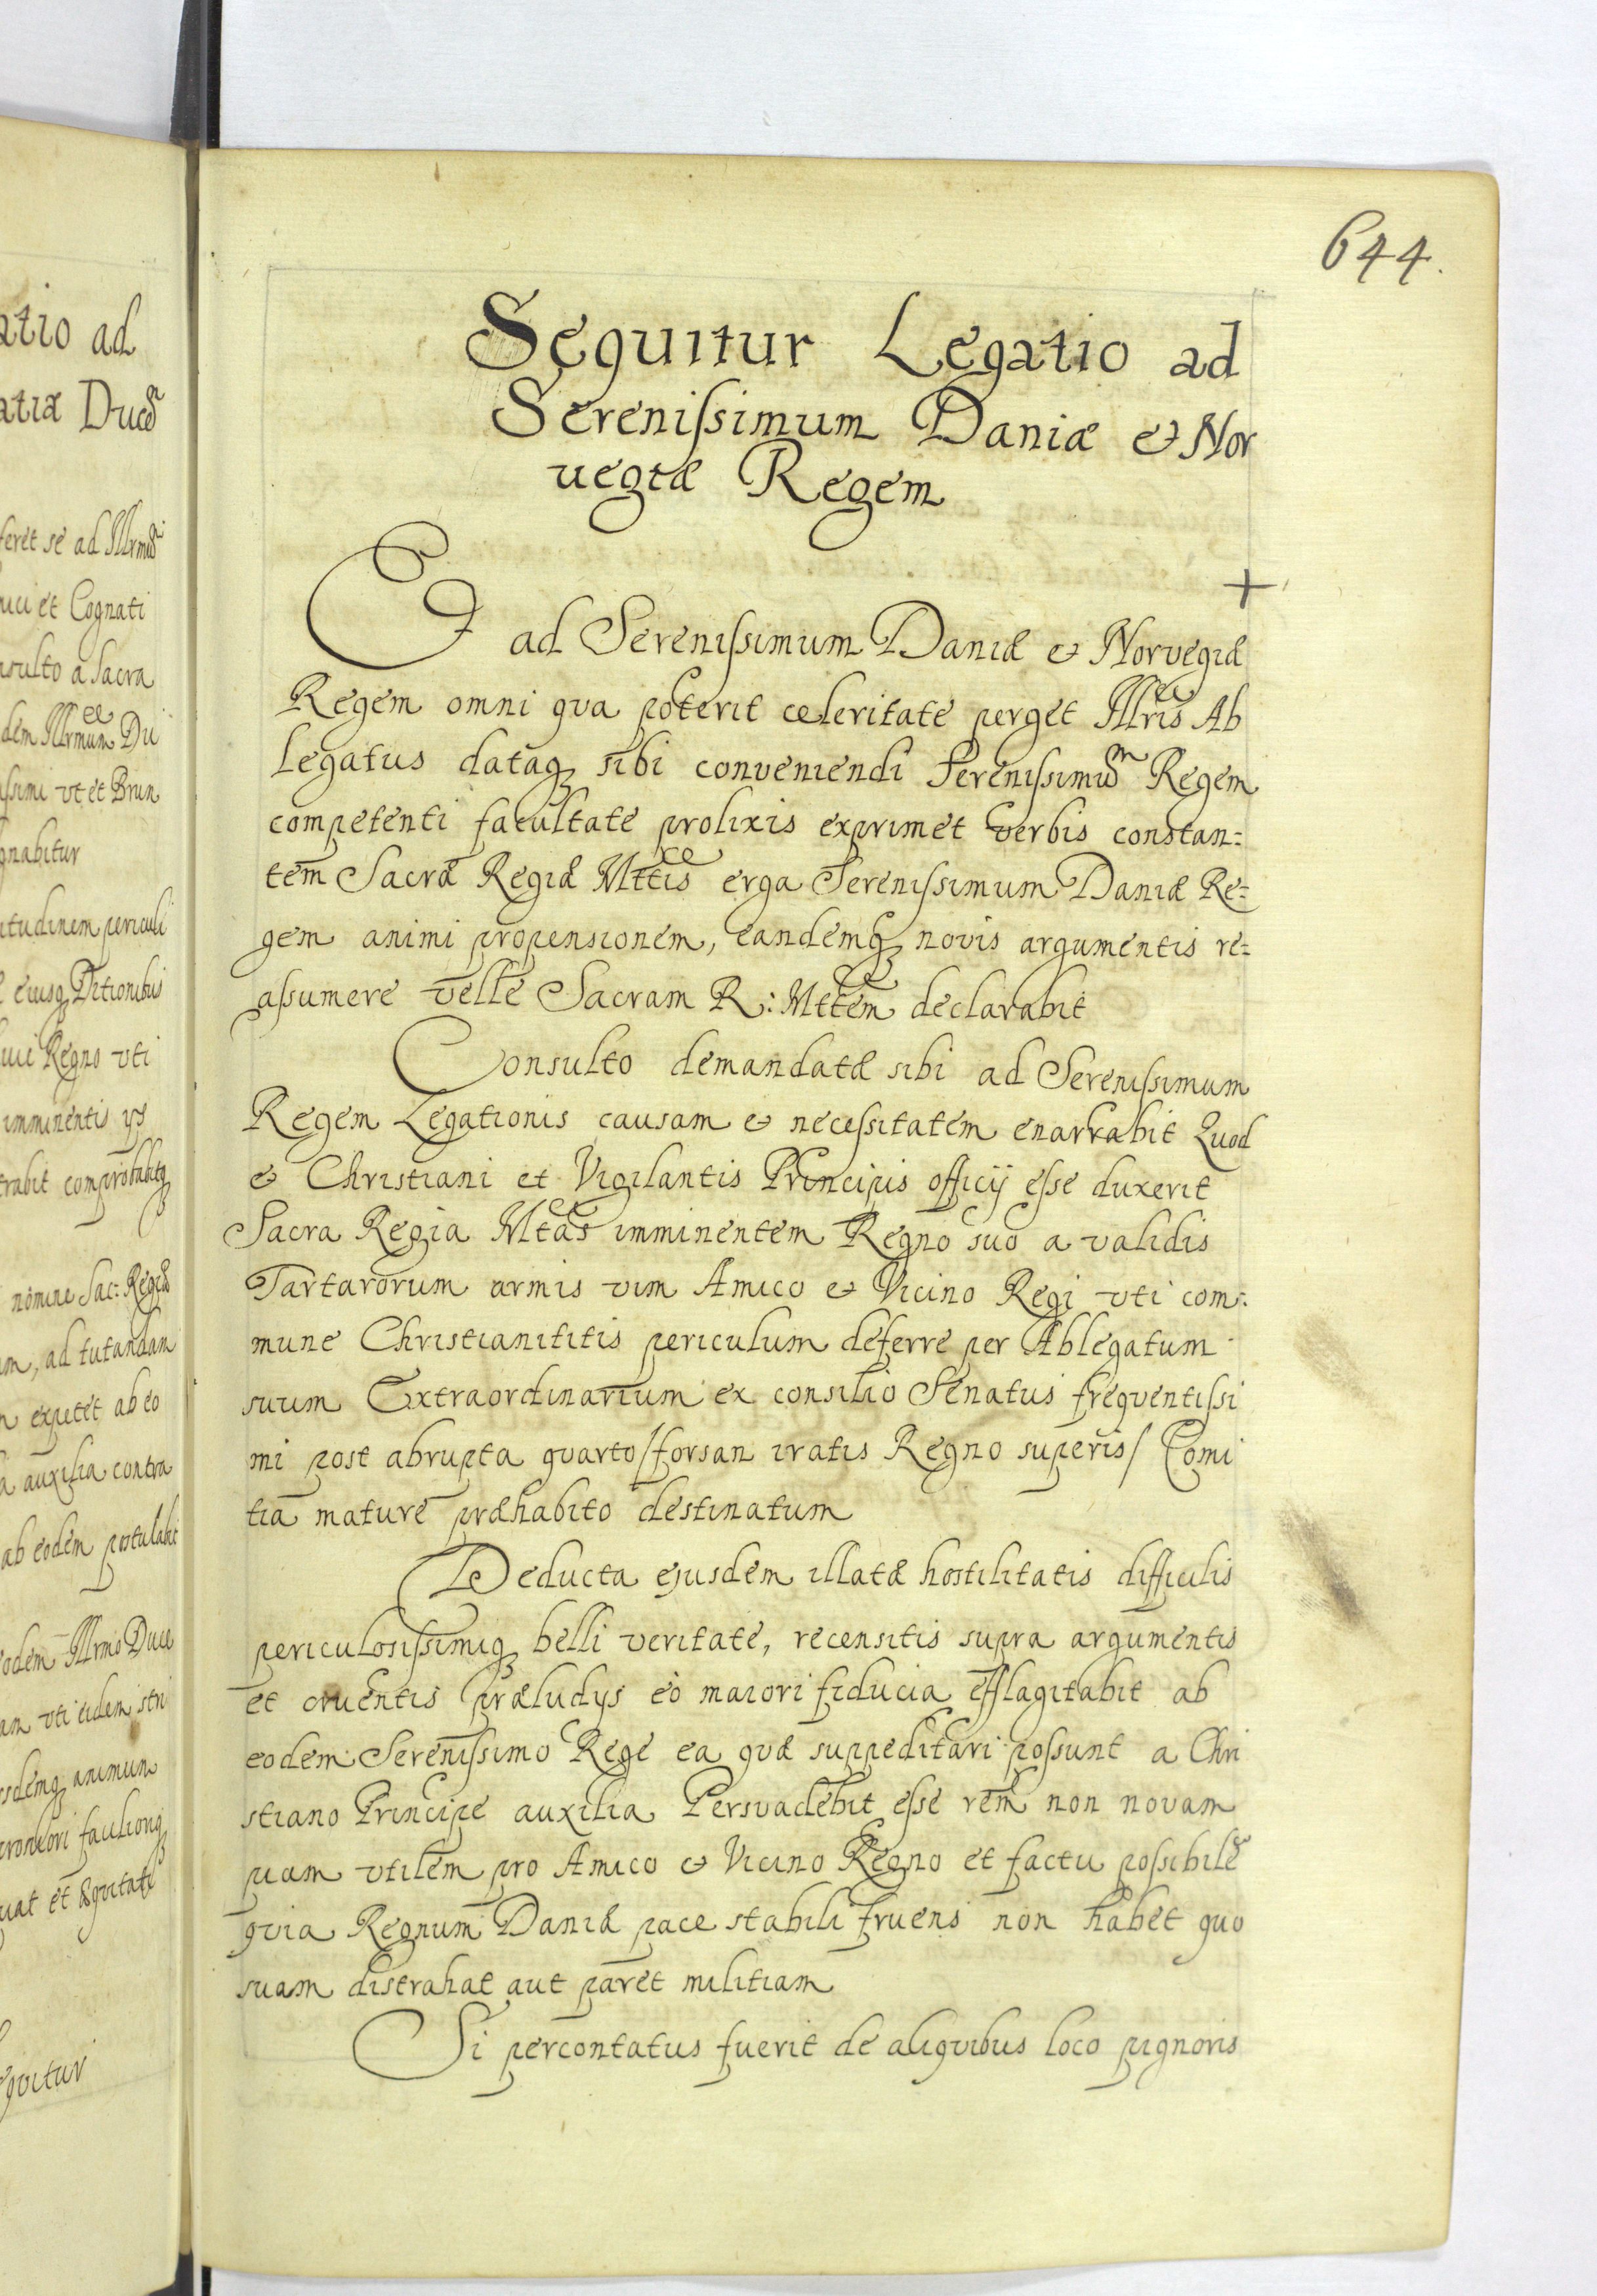 644.
Sequitur Legatio ad
Serenissimum Daniæ & Nor
uegiæ Regem
+
Et ad Serenissimum Daniæ & Norvegiæ
Regem omni qva poterit celeritate perget Illris Ab
Legatus dataq sibi conveniendi Serenissimum Regem
competenti facultate prolixis exprimet verbis constan=
tem Sacræ Regiæ Mttis erga Serenissimum Daniæ Re=
gem animi propensionem, eandemq novis argumentis re=
assumere velle Sacram R: Mttem declarabit
Consulto demandatæ sibi ad Serenissimum
Regem Legationis causam & necessitatem enarrabit Quod
& Christiani et Vigilantis Principis officij esse duxerit
Sacra Regia Mtas imminentem Regno suo a validis
Tartarorum armis vim Amico & Vicino Regi vti com=
mune Christianititis periculum deferre per Ablegatum
suum Extraordinarium ex consilio Senatus freqventissi
mi post abrupta qvarto/forsan iratis Regno superis/ Comi
tia mature præhabito destinatum
Deducta ejusdem illatæ hostilitatis difficilis
periculosissimiq belli veritate, recensitis supra argumentis
et cruentis præludijs eò maiori fiducia efflagitabit ab
eodem Serenissimo Rege ea qvæ suppeditari possunt a Chri
stiano Principe auxilia Persvadebit esse rem non novam
piam vtilem pro Amico & Vicino Regno et factu possibilem
qvia Regnum Daniæ pace stabili fruens non habet quo
suam distrahat aut paret militiam
Si percontatus fuerit de aliqvibus loco pignoris
atio ad
atiæ Ducem
feret se ad Illrmum
uici et Cognati
nsulto a Sacra
dem Illrmum Du
issimi vt et Brun
gnabitur
itudinem periculi
eiusq Ditionibus
uic Regno vti
imminentis
trabit comprobabitq
nomine Sac: Regiæ
am, ad tutandam
expetet ab eo
a auxilia contra
ab eodem postulabit
eodem Illrmo Duce
am vti eidem
sdemq animum
qvitur